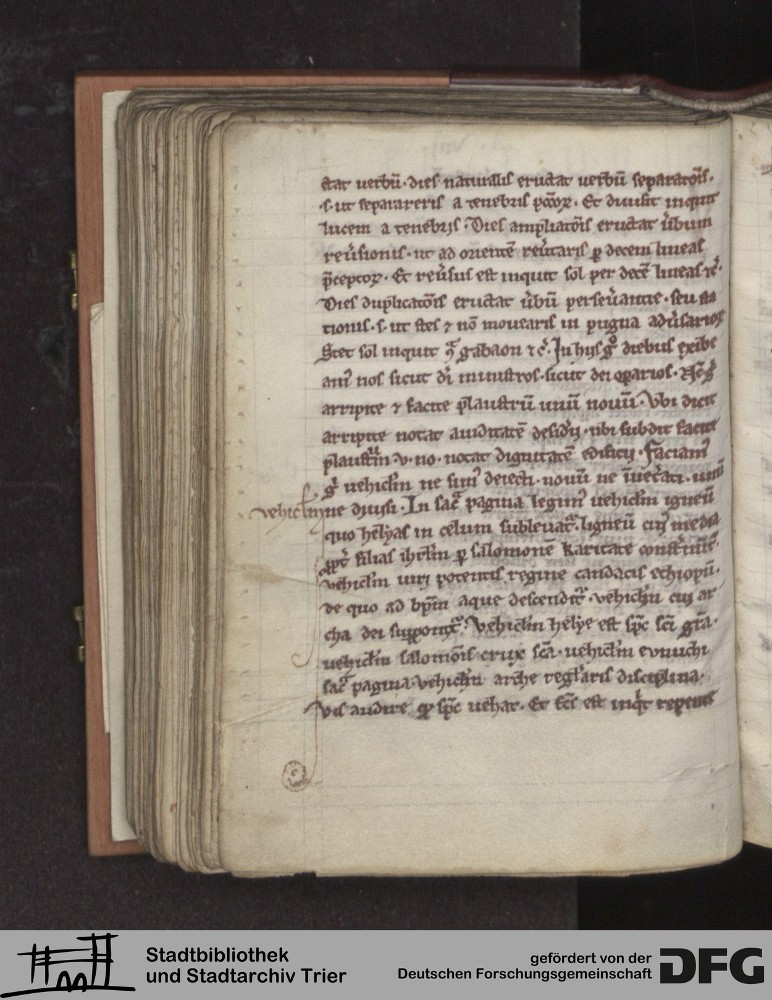 ctat uerbū· dies naturalis eructat uerbū separatōis·
·s· ut separareris a tenebris pctōꝝ· Et diuisit inquit
lucem a tenebris· Dies ampliatōis eructat ūbum
reūsionis· ut ad orientē reūtaris ꝑ decem lineas
p̄ceptoꝝ· Et reūsus est inquit sol per decē lineas
Dies duplicatōis eructat ūbū perseūantie· seu sta
tionis· s· ut stes ⁊ nō mouearis in pugna adūsarioꝝ
Stet sol inquit gabaon ⁊ c̄· In hijs gͦ diebus exibe
amꝰ nos sicut dī ministros· sicut dei oꝑarios·
arripite ⁊ facite plaustrū unū nouū· Vbi dicit
arripite notat auiditatē desidīj· ubi subdit facite
plaustrū v· no· notat dignitatē edificij· Faciamꝰ
gͦ vehiclm ne simꝰ deiecti· nouū ne īueꝼati· unū
vehiclm
ne diuisi· In sac̄ pagina legimꝰ uehiclm igneū
quo helyas in celum subleuatꝰ· ligneū cuiꝰ media
filias ihrlm ꝑ salomonē karitate
vehiclm uiri potentis regine candacis ethiopū·
de quo ad bp̄m aque descendit· vehiclm cui ar
cha dei supponitꝰ· Vehiclm helye est sp̄c sc̄i gr̄a·
uehiclm salomōis crux sc̄a· uehiclm eunuchi
sac̄ pagina· vehiclm arche reglaris disciplina·
Vis audire qͥ sp̄c uehat· Et fc̄s est inqͥt repente
Stadtbibliothek
und Stadtarchiv Trier
gefördert von der
Deutschen Forschungsgemeinschaft
DFG